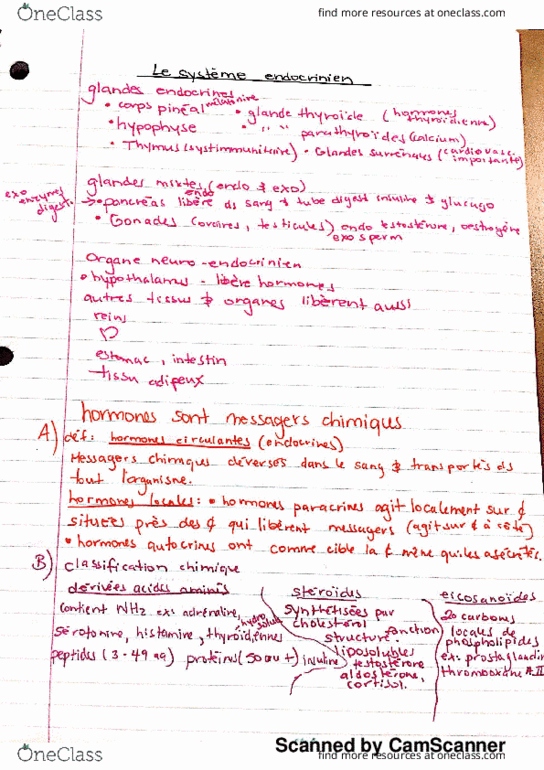 OneClass
find more resources at oneclass.com
Le système endocrinien
glandes endocrines
• corps pinéal mélatonine • glande thyroïde (hormones thyroïdienne)
• hypophyse • " " parathyroïdes (calcium)
• Thymus (syst immunitaire) • Glandes surrénales (cardiovasc. importante)
glandes mixtes (endo & exo)
exo enzymes digest.
→ • pancréas libère ds sang & tube digest insuline & glucago
endo
• Gonades (ovaires, testicules) endo testostérone, oestrogène
exo sperm
Organe neuro-endocrinien
• hypothalamus - libère hormones
autres tissus & organes libèrent aussi
reins
♡
estomac, intestin
tissu adipeux
hormones sont messagers chimiques
A) déf: hormones circulantes (endocrines)
Messagers chimiqs déversés dans le sang & transportés ds
tout l'organisme.
hormones locales: • hormones paracrines agit localement sur ¢
situées près des ¢ qui libèrent messagers (agit sur ¢ à côté)
• hormones autocrines ont comme cible la ¢ même qui les a sécrétés.
B) classification chimique
dérivées acides aminés
contient NH2 ex: adrénaline,
sérotonine, histamine, thyroïdiennes
hydrosolubl
peptides (3-49 aa) protéines (50 ou +) insuline
stéroïdes
synthétisées par
cholestérol
structure fonction
liposolubles
testostérone
aldostérone,
cortisol.
eicosanoïdes
20 carbons
locales de
phospholipides
ex: prostaglandin
thromboxane A II
Scanned by CamScanner
OneClass
find more resources at oneclass.com